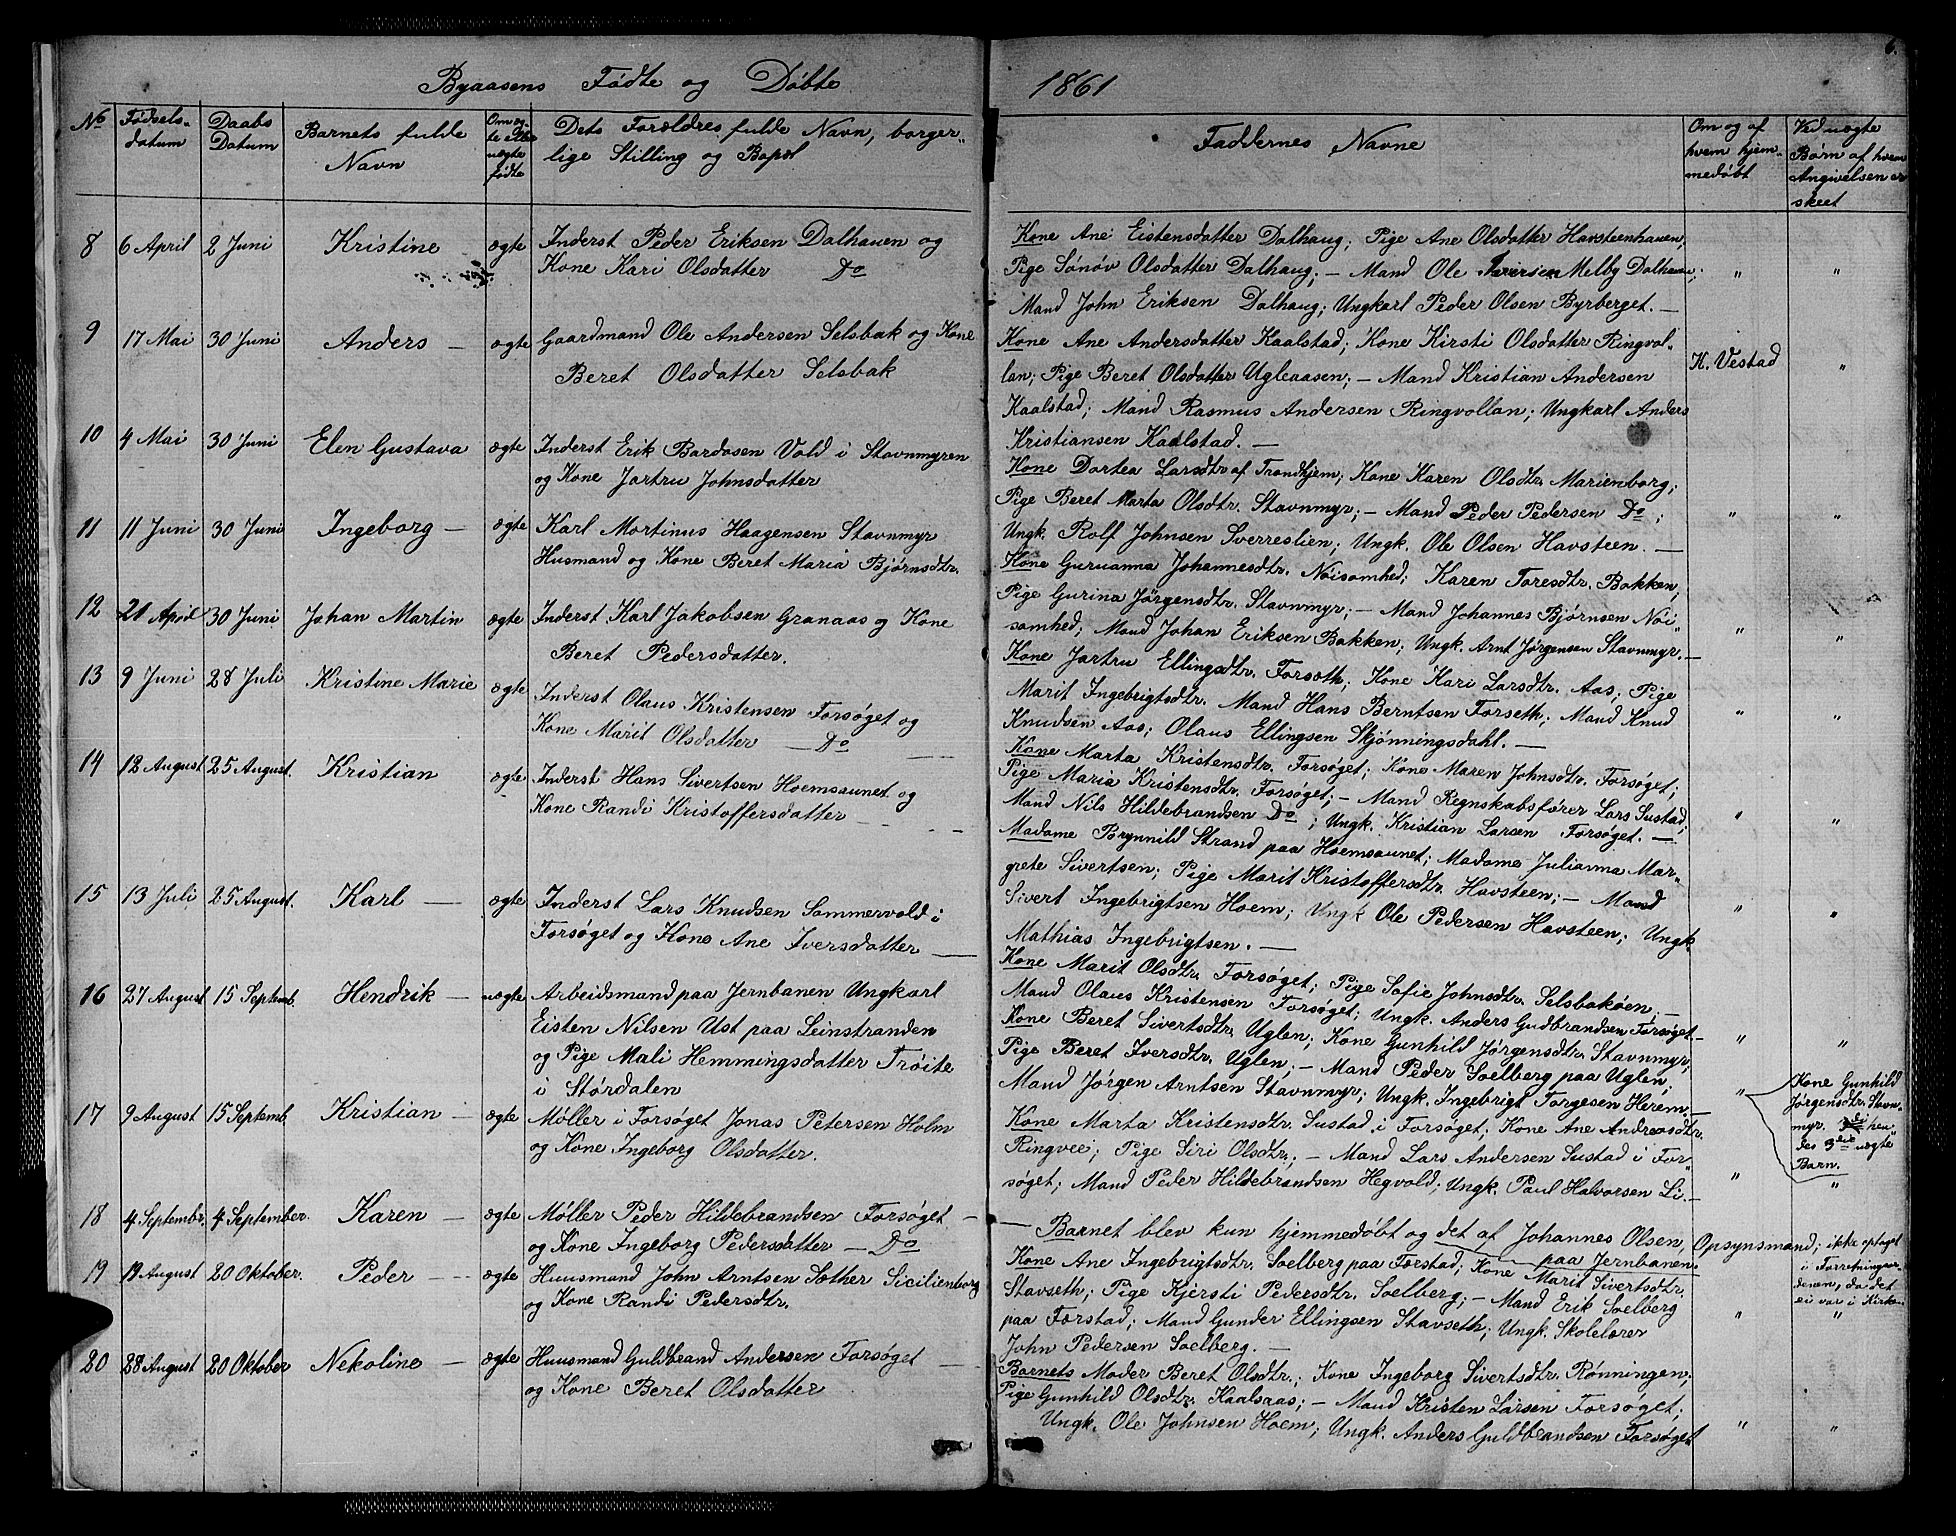 6.
Byaasens Fødte og Døbte
1861
No
Fødsels-
datum
Daabs
Datum
Barnets fulde
Navn
Om æg-
te eller
uægte
født
Dets Forældres fulde Navn, borger-
lige Stilling og Bopæl
Faddernes Navne
Om og af
hvem hjem-
medøbt
Ved uægte
Børn af hvem
Angivelsen er
skeet
8 6 April 2 Juni Kristine ægte
Inderst Peder Eriksen Dalhauen og
Kone Kari Olsdatter Do
Kone Ane Eistensdatter Dalhaug; Pige Ane Olsdatter Havsteenhauen;
Pige Sønøv Olsdatter Dalhaug; — Mand Ole Iversen Melby Dalhauen; " "
Mand John Eriksen Dalhaug; Ungkarl Peder Olsen Byrberget. —
9 17 Mai 30 Juni Anders — ægte
Gaardmand Ole Andersen Selsbak og Kone
Beret Olsdatter Selsbak
Kone Ane Andersdatter Kaalstad; Kone Kirsti Olsdatter Ringvol-
lan; Pige Beret Olsdatter Ugleaasen; — Mand Kristian Andersen
K. Vestad "
Kaalstad; Mand Rasmus Andersen Ringvollan; Ungkarl Anders
Kristiansen Kaalstad. —
10 4 Mai 30 Juni Elen Gustava ægte
Inderst Erik Bardosen Vold i Stavnmyren
og Kone Jartru Johnsdatter
Kone Dortea Larsdtr. af Trondhjem; Kone Karen Olsdtr. Marienborg;
Pige Beret Marta Olsdtr. Stavnmyr; — Mand Peder Pedersen Do; " "
Ungk. Rolf Johnsen Sverreslien; Ungk. Ole Olsen Havsteen. —
11 11 Juni 30 Juni Ingeborg — ægte
Karl Mortinus Haagensen Stavnmyr
Husmand og Kone Beret Maria Bjørnsdtr.
Kone Guruanna Johannesdtr. Nøisomhed; Karen Toresdtr. Bakken;
Pige Gurina Jørgensdtr. Stavnmyr; — Mand Johannes Bjørnsen Nøi-
somhed; Mand Johan Eriksen Bakken; Ungk. Arnt Jørgensen Stavnmyr. — " "
12 21 April 30 Juni Johan Martin ægte
Inderst Karl Jakobsen Granaas og Kone
Beret Pedersdatter.
Kone Jartru Ellingsdtr. Forseth; Kone Kari Larsdtr. Aas; Pige
Marit Ingebrigtsdtr. Mand Hans Berntsen Forseth; Mand Knud " "
Knudsen Aas; Olaus Ellingsen Skjønningsdahl. —
13 9 Juni 28 Juli Kristine Marie ægte
Inderst Olaus Kristensen Forsøget og
Kone Marit Olsdatter — Do
Kone Marta Kristensdtr. Forsøget; Kone Maren Johnsdtr. Forsøget;
Pige Maria Kristensdtr. Forsøget; — Mand Regnskabsfører Lars Sustad;
Mand Nils Hildebrandsen Do; Ungk. Kristian Larsen Forsøget. — " "
14 12 August 25 August. Kristian ægte
Inderst Hans Sivertsen Hoemsaunet og
Kone Randi Kristoffersdatter —
Madame Brynnild Strand paa Hoemsaunet; Madame Julianna Mar-
grete Sivertsen; Pige Marit Kristoffersdtr. Havsteen; — Mand
Sivert Ingebrigtsen Hoem; Ungk Ole Pedersen Havsteen; Ungk. " "
Mathias Ingebrigtsen. —
15 13 Juli 25 August. Karl — ægte
Inderst Lars Knudsen Sommervold i
Forsøget og Kone Ane Iversdatter —
Kone Marit Olsdtr. Forsøget; Pige Sofie Johnsdtr. Selsbakøen; —
Mand Olaus Kristensen Forsøget; Ungk. Anders Gudbrandsen Forsøget —
16 27 August 15 Septemb. Hendrik — uægte
Arbeidsmand paa Jernbanen Ungkarl
Eisten Nilsen Ust paa Leinstranden
og Pige Mali Hemmingsdatter Trøite
i Størdalen
Kone Beret Sivertsdtr. Uglen; Kone Gunhild Jørgensdtr. Stavnmyr;
Pige Beret Iversdtr. Uglen; — Mand Peder Soelberg paa Uglen; " "
Mand Jørgen Arntsen Stavnmyr; Ungk. Ingebrigt Torgesen Herem. —
" Kone Gunhild
Jørgensdtr. Stavn-
myr. hen-
des 3die uægte
Barn.
17 9 August 15 Septemb. Kristian — ægte
Møller i Forsøget Jonas Petersen Holm
og Kone Ingeborg Olsdatter.
Kone Marta Kristensdtr. Sustad i Forsøget; Kone Ane Andreasdtr.
Ringvei; Pige Siri Olsdtr.; — Mand Lars Andersen Sustad i For-
søget; Mand Peder Hildebrandsen Hegvold; Ungk. Paul Halvorsen Li. — " "
18 4 Septembr. 4 September. Karen — ægte
Møller Peder Hildebrandsen Forsøget —
og Kone Ingeborg Pedersdatter — Do
— Barnet blev kun hjemmedøbt og det af Johannes Olsen, Opsynsmand;
paa Jernbanen.
ikke optaget
i Forretningsor-
denen, da det
ei var i Kirken
19 19 August 20 Oktober. Peder — ægte
Huusmand John Arntsen Sæther Sicilienborg
og Kone Randi Pedersdtr.
Kone Ane Ingebrigtsdtr. Soelberg paa Forstad; Kone Marit Sivertsdtr.
Stavseth; Pige Kjersti Pedersdtr. Soelberg; — Mand Erik Soelberg
paa Forstad; Mand Gunder Ellingsen Stavseth; Ungk. Skolelærer " "
John Pedersen Soelberg. —
20 28 August 20 Oktober Nekoline — ægte
Huusmand Guldbrand Andersen Forsøget —
og Kone Beret Olsdatter
Barnets Moder Beret Olsdtr.; Kone Ingeborg Sivertsdtr. Rønningen;
Pige Gunhild Olsdtr. Kaalsaas; — Mand Kristen Larsen Forsøget;
Ungk. Ole Johnsen Hoem; Ungk. Anders Guldbrandsen Forsøget " "